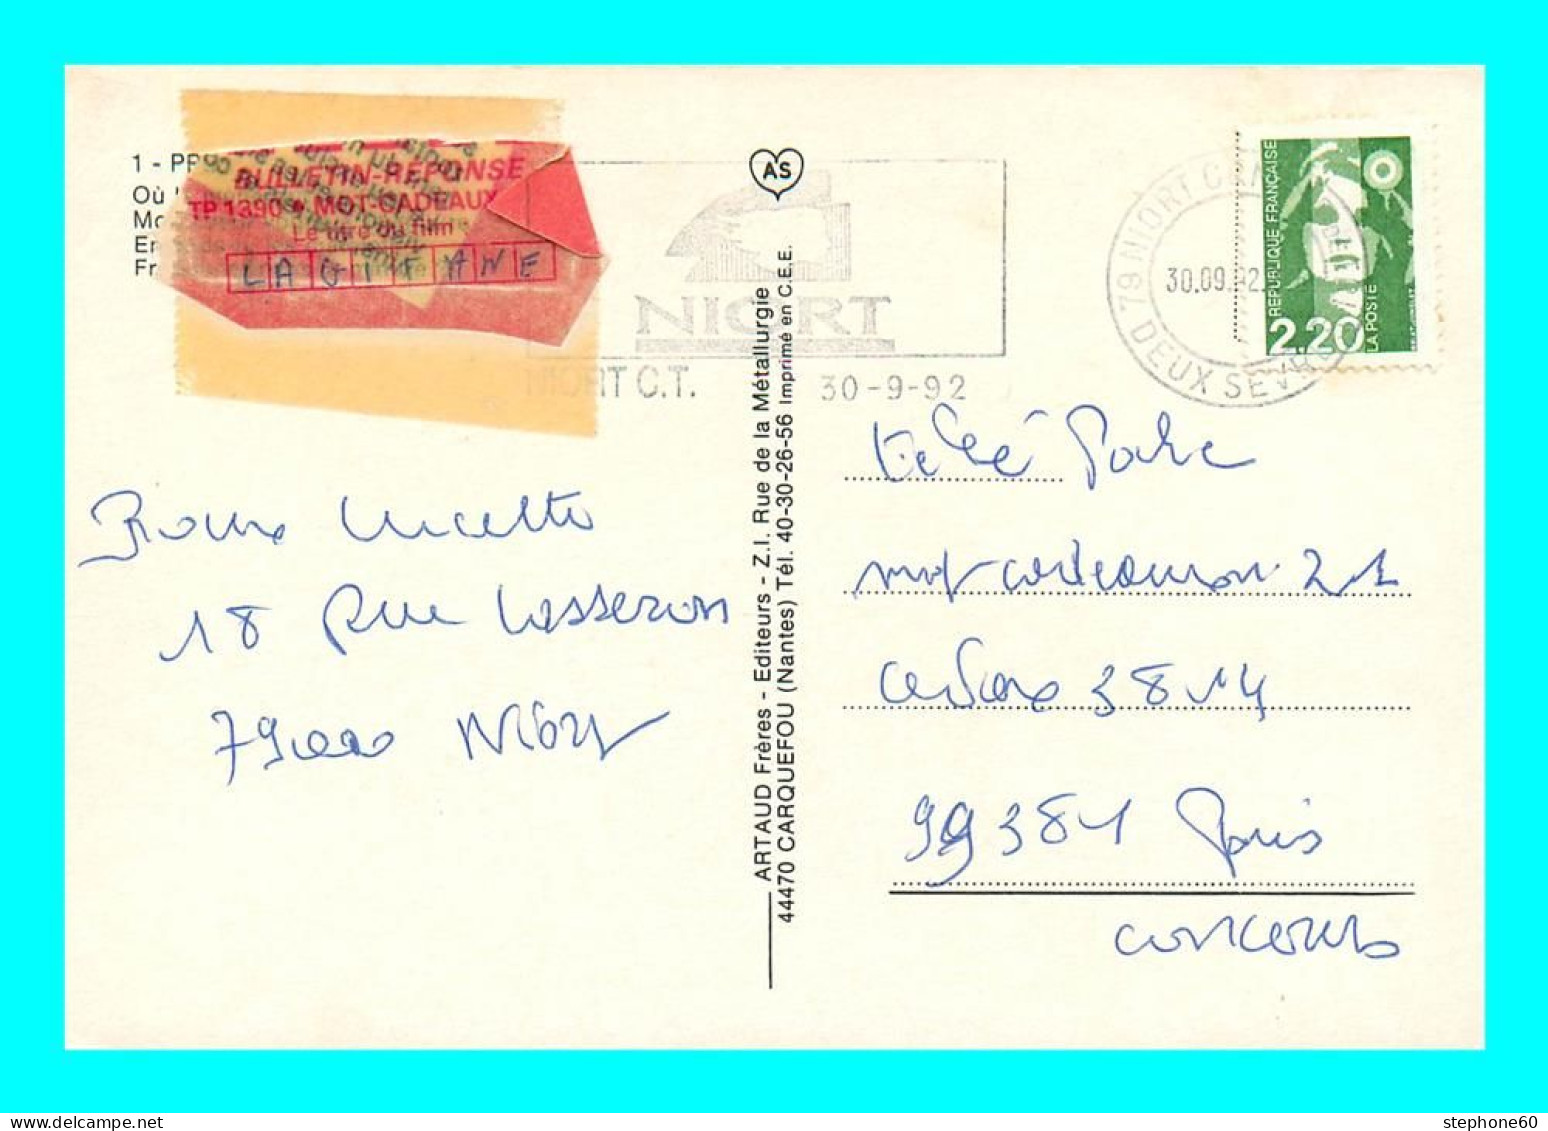 1 - PR
Où
Mo
En
Fr
BULLETIN-RÉPONSE
TP 1390 • MOT-CADEAUX
Le titre du film
LA GITANE
AS
NIORT
NIORT C.T. 30-9-92
79 NIORT
DEUX SEVRES
30.09.92
REPUBLIQUE FRANÇAISE
2.20
LA POSTE
ARTAUD Frères - Editeurs - Z.I. Rue de la Métallurgie
44470 CARQUEFOU (Nantes) Tél. 40-30-26-56 Imprimé en C.E.E.
Lucette
18 Rue
79000 Niort
télé Poche
mot
3814
99381 Paris
concours
stephone60